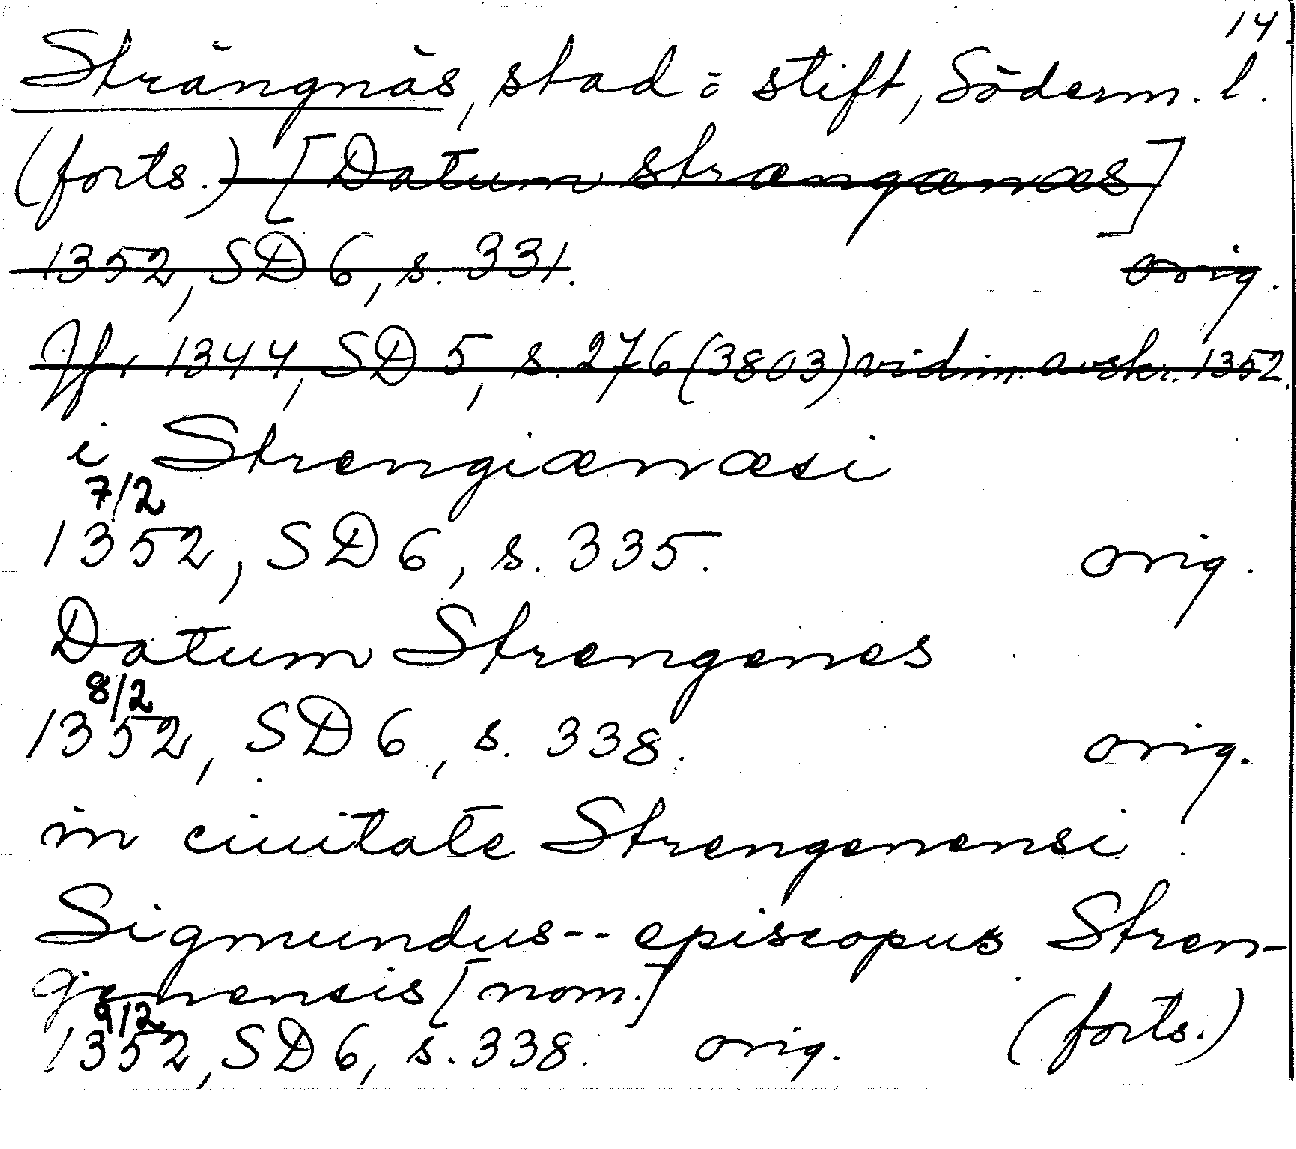 14
Strängnäs, stad o. stift, Söderm. l.
(forts.) [Datum strængænæs]
1352, SD 6, s. 331. orig.
Jfr 1344, SD 5, s. 276 (3803) vidim. avskr. 1352.
i Strengiænæsi
7/2
1352, SD 6, s. 335. orig.
Datum Strengenes
8/2
1352, SD 6, s. 338. orig.
in ciuitate Strengenensi
Sigmundus -- episcopus Stren-
genensis [nom.]
9/2
1352, SD 6, s. 338. orig. (forts.)